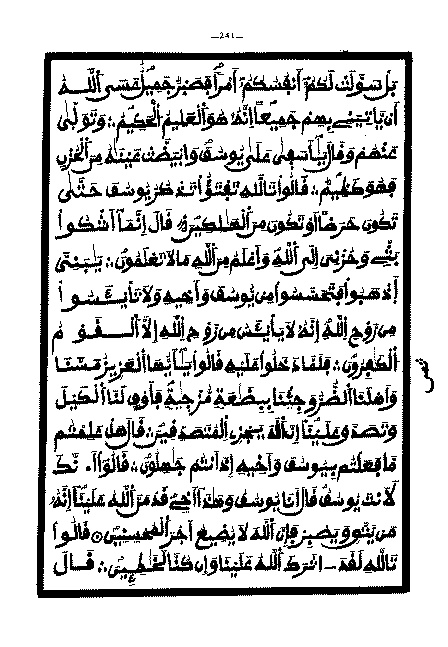 —241—
بل سولت لكم أنفسكم أمرا فصبر جميل عسى الله
أن يأتيني بهم جميعا إنه هو العليم الحكيم ∴ وتولى
عنهم وقال يأسفى على يوسف وابيضت عينه من الحزن
فهو كظيم ∴ قالوا تالله تفتؤا تذكر يوسف حتى
تكون حرضا أو تكون من الهلكين ∴ قال إنما أشكوا
بثي وحزني إلى الله وأعلم من الله ما لا تعلمون ∴ يبني
إذهبوا فتحسسوا من يوسف وأخيه ولا تايئسوا
من روح الله إنه لا يايئس من روح الله إلا القوم
الكفرون ∴ فلما دخلوا عليه قالوا يأيها العزيز مسنا
وأهلنا الضر وجئنا ببضعة مزجية فأوف لنا الكيل
وتصدق علينا إن الله يجزي المتصدقين ∴ قال هل علمتم
ما فعلتم بيوسف وأخيه إذ أنتم جهلون ∴ قالوا أ۰نك
لأنت يوسف قال أنا يوسف وهذا أخي قد من الله علينا إنه
من يتق ويصبر فإن الله لا يضيع أجر المحسنين ⊙ قالوا
تالله لقد اثرك الله علينا وإن كنا لخطين ∴ قال